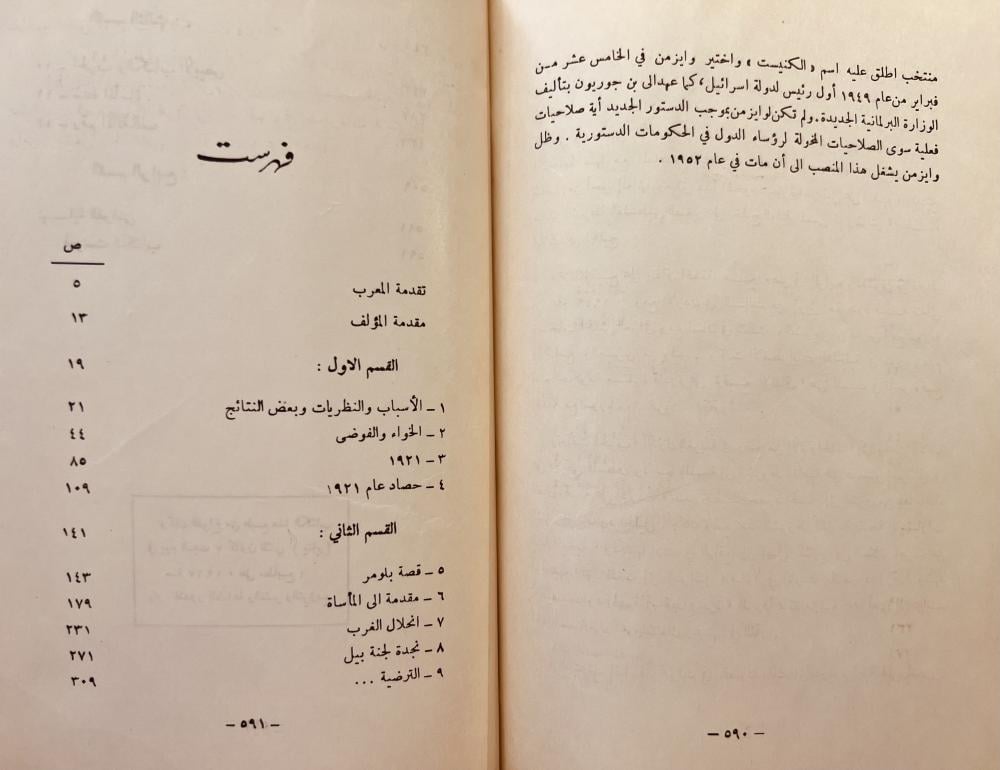 منتخب اطلق عليه اسم «الكنيست» واختير وايزمن في الخامس عشر من
فبراير من عام ١٩٤٩ أول رئيس لدولة اسرائيل، كما عهد الى بن جوريون بتأليف
الوزارة البرلمانية الجديدة. ولم تكن لوايزمن بموجب الدستور الجديد أية صلاحيات
فعلية سوى الصلاحيات المخولة لرؤساء الدول في الحكومات الدستورية . وظل
وايزمن يشغل هذا المنصب الى أن مات في عام ١٩٥٢ .
— ٥٩٠ —
فهرست
ص
تقدمة المعرب ٥
مقدمة المؤلف ١٣
القسم الاول : ١٩
١ ـ الأسباب والنظريات وبعض النتائج ٢١
٢ ـ الخواء والفوضى ٤٤
٣ ـ ١٩٢١ ٨٥
٤ ـ حصاد عام ١٩٢١ ١٠٩
القسم الثاني : ١٤١
٥ ـ قصة بلومر ١٤٣
٦ ـ مقدمة الى المأساة ١٧٩
٧ ـ انحلال الغرب ٢٣١
٨ ـ نجدة لجنة بيل ٢٧١
٩ ـ الترضية ... ٣٠٩
— ٥٩١ —